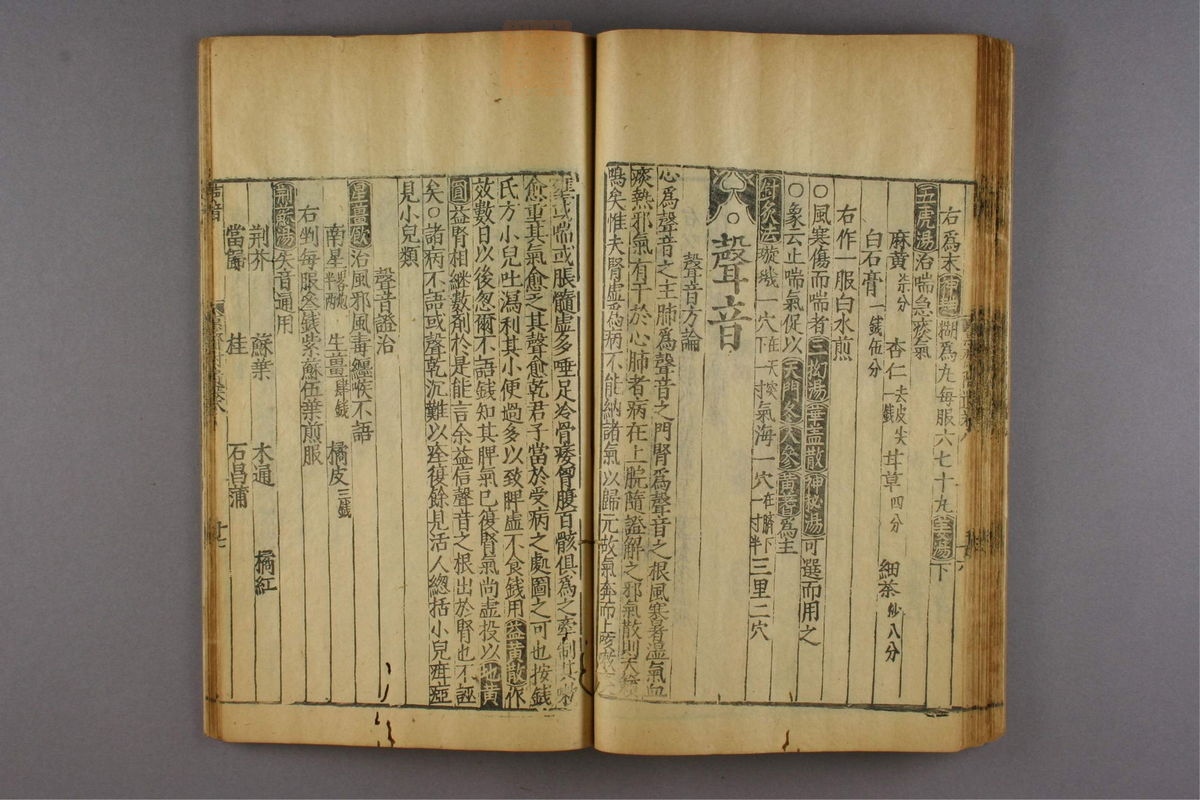 右爲末神麯糊爲丸每服六七十丸薑湯下
五虎湯治喘急痰氣
麻黃柒分 杏仁去皮尖一錢 甘草四分 細茶炒八分
白石膏一錢伍分
右作一服白水煎
○風寒傷而喘者三拗湯華蓋散神秘湯可選而用之
○象云止喘氣促以天門冬人參黃蓍爲主
針灸法璇璣一穴在天突下一寸氣海一穴在臍下一寸半三里二穴
聲音
聲音方論
心爲聲音之主肺爲聲音之門腎爲聲音之根風寒暑濕氣血
痰熱邪氣有干於心肺者病在上脘隨證解之邪氣散則天籟
鳴矣惟夫腎虛爲病不能納諸氣以歸元故氣奔而上
或喘或脹髓虛多唾足冷骨痿胷腹百骸俱爲之牽制其
愈重其氣愈乏其聲愈乾君子當於受病之處圖之可也按錢
氏方小兒吐瀉利其小便過多以致脾虛不食錢用益黃散作
效數日以後忽爾不語錢知其脾氣已復腎氣尚虛投以地黃
圓益腎相繼數劑於是能言余益信聲音之根出於腎也不誣
矣○諸病不語或聲乾沉難以痊復餘見活人總括小兒瘖瘂
見小兒類
聲音證治
星薑飲治風邪風毒纏喉不語
南星 生薑肆錢 橘皮三錢
右剉每服叁錢紫蘇伍葉煎服
荊蘇湯失音通用
荊芥 蘇葉 木通 橘紅
當歸 桂 石昌蒲